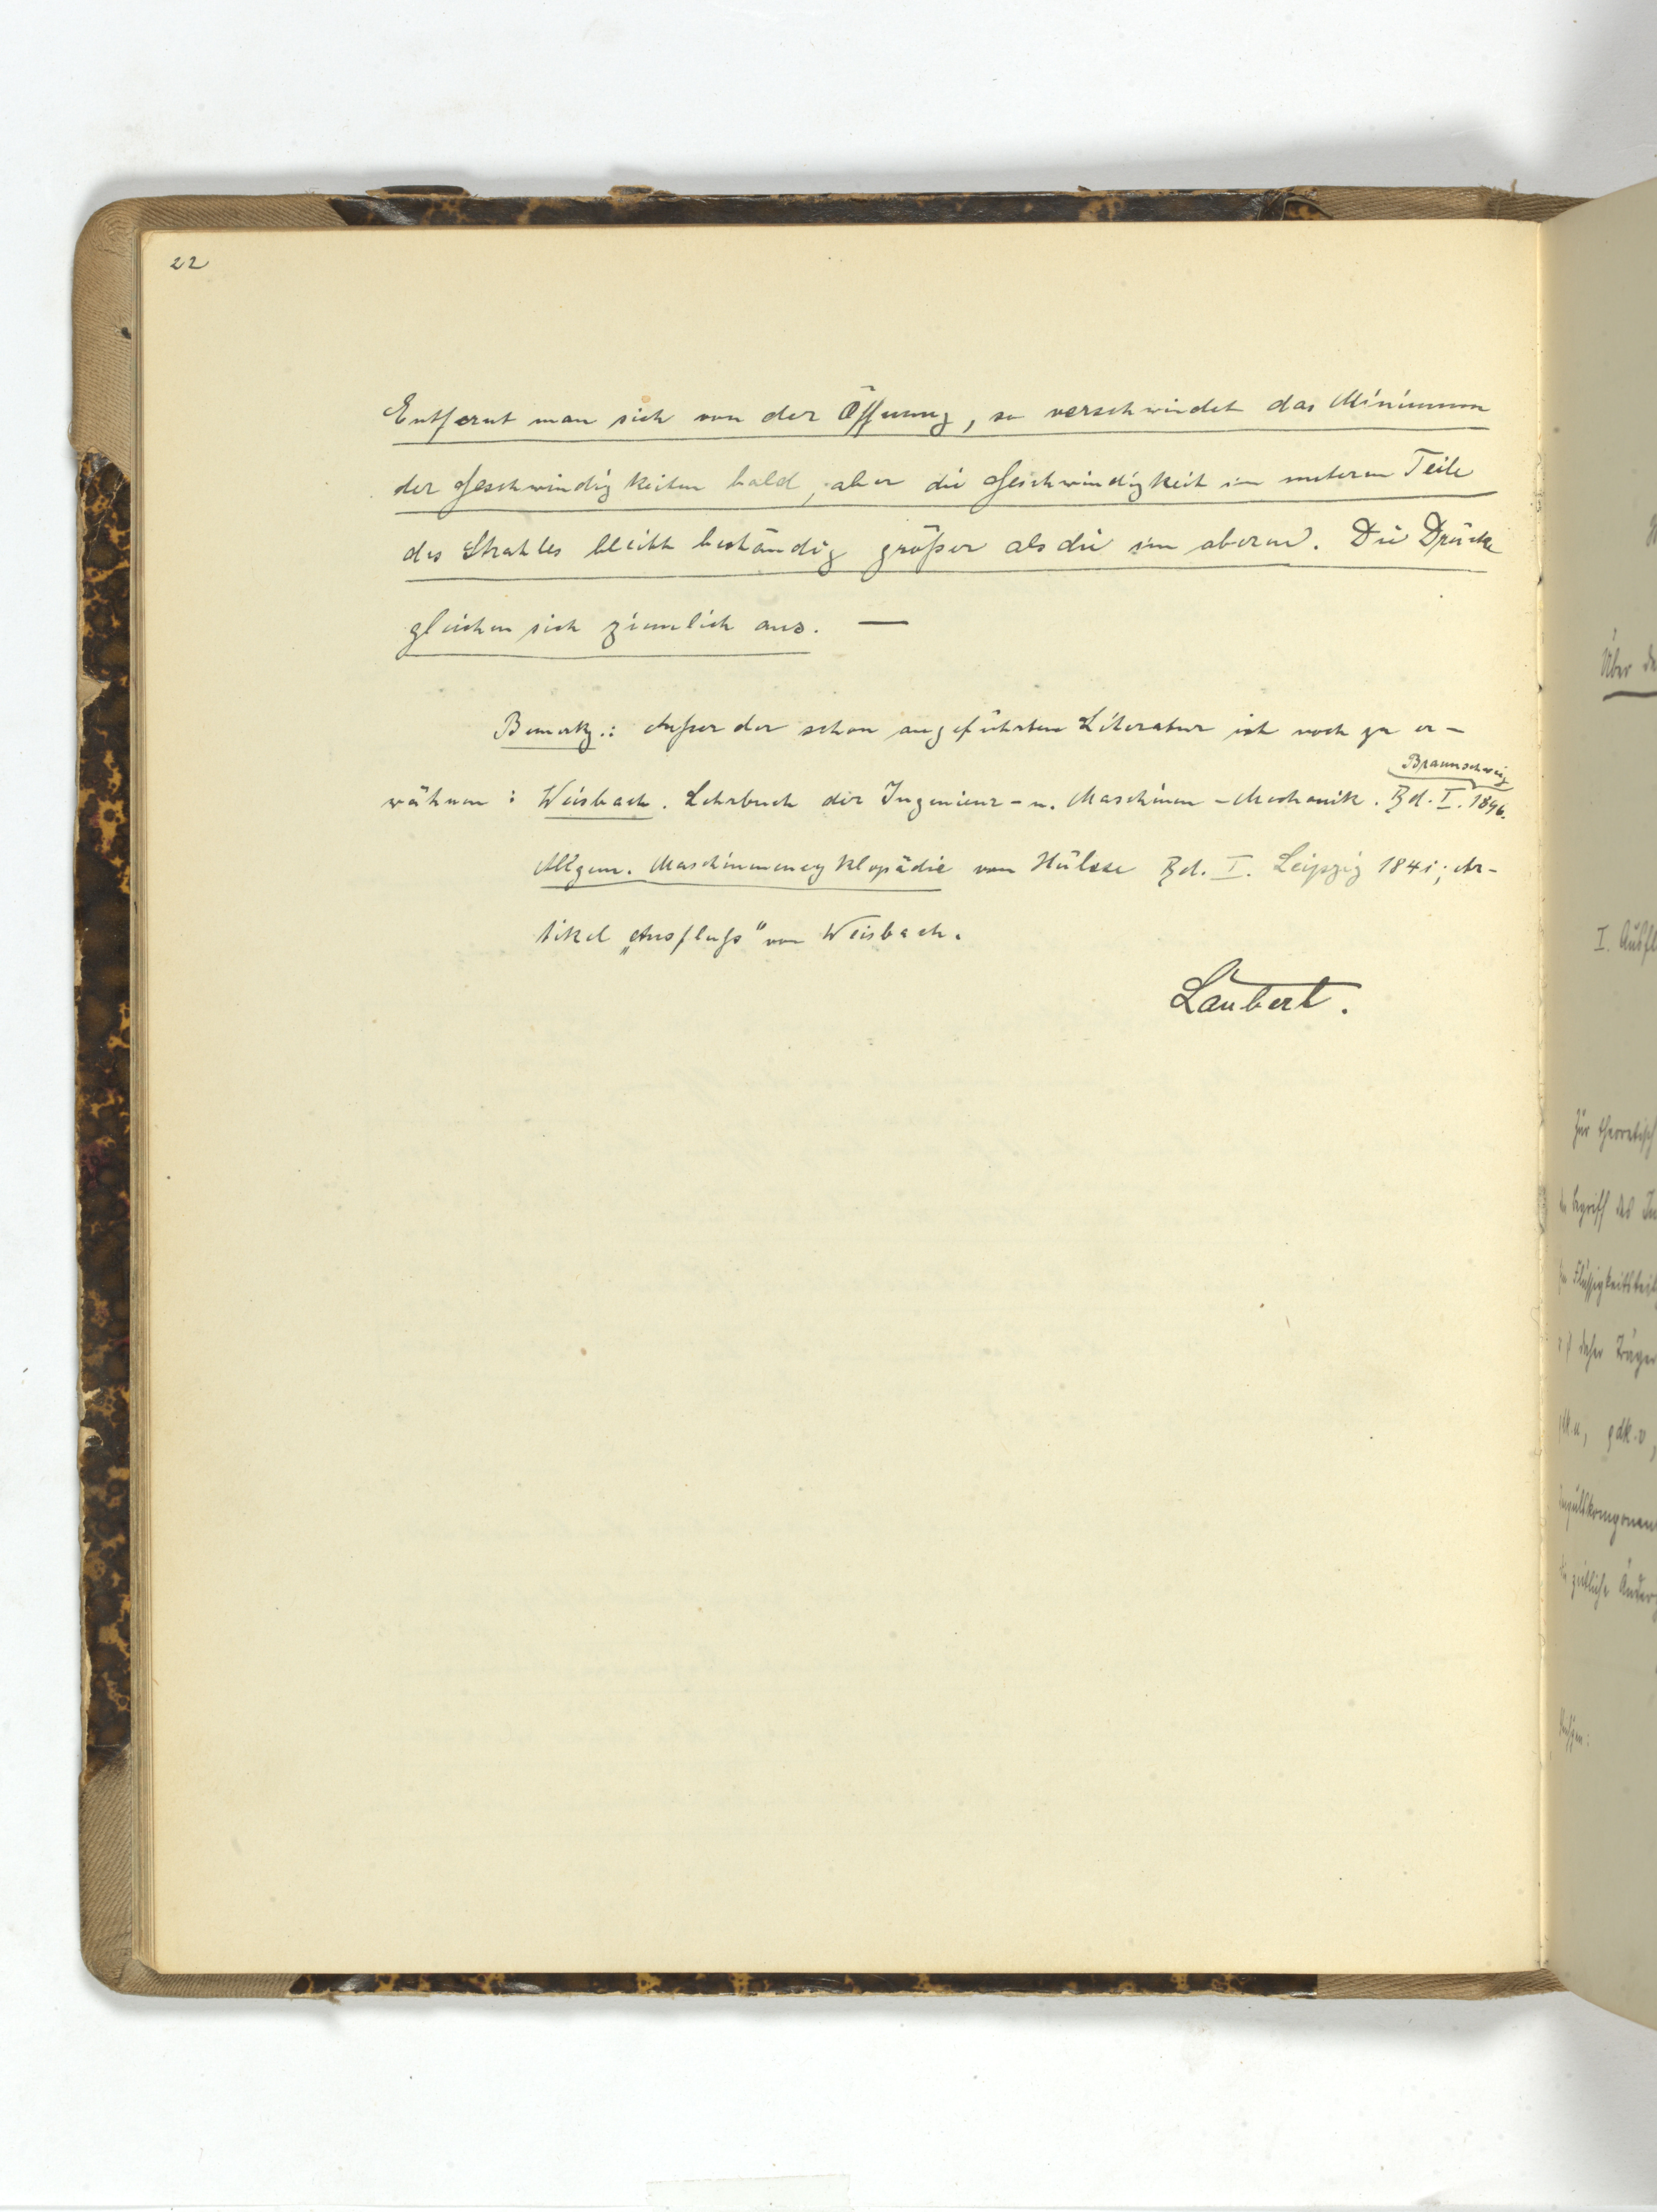 22
Entfernt man sich von der Öffnung, so verschwindet das Minimum
der Geschwindigkeiten bald, aber die Geschwindigkeit im unteren Teile
des Strahles bleibt beständig größer als die im oberen. Die Drücke
gleichen sich ziemlich aus. —
Bemerkg.: Außer der schon angeführten Literatur ist noch zu er-
Braunschweig
wähnen: Weisbach. Lehrbuch der Ingenieur- u. Maschinen-Mechanik. Bd. I. 1896.
Allgem. Maschinenencyklopädie von Hülsse Bd. I. Leipzig 1841; Ar-
tikel „Ausfluss" von Weisbach.
Laubert.
Über
I. Ausfl
Zur theoretisch
Begriff des
Flüssigkeitsteil
daher Träger
zeitliche